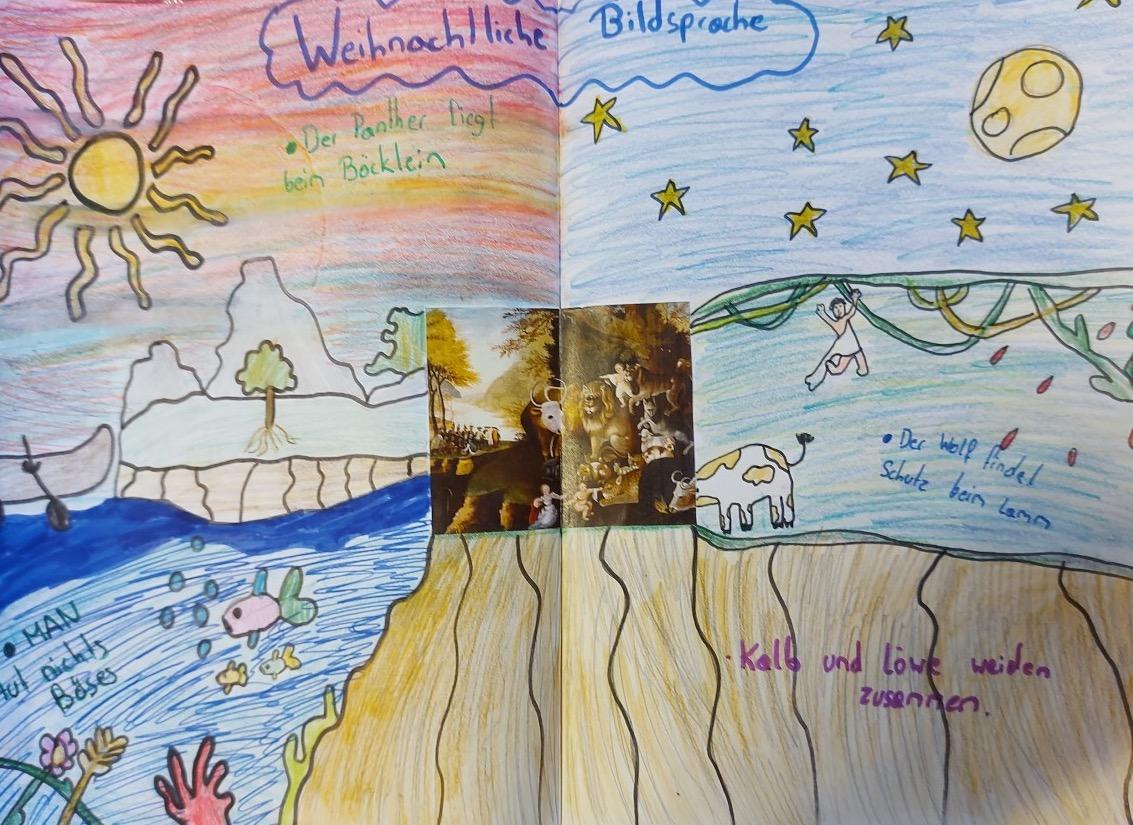 Weihnachtliche Bildsprache
• Der Panther liegt
beim Böcklein
• Der Wolf findet
Schutz beim Lamm
• MAN
tut nichts
Böses
• Kalb und Löwe weiden
zusammen.